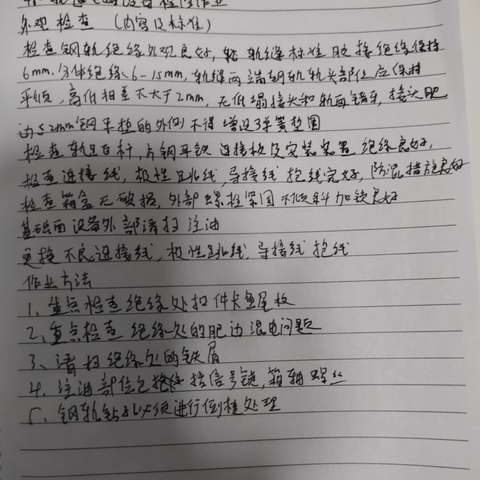 外观检查 (内容及标准)
检查钢轨绝缘外观良好, 轨缝标准胶接绝缘保持
6mm, 分体绝缘 6-15mm, 轨缝两端钢轨轨头部位应保持
平顺, 高低相差不大于2mm, 无低塌接头和轨面错牙, 接头肥
边≤2mm 钢 的外侧不得增设弹簧垫圈
检查轨 杆, 连接板及安装装置绝缘良好,
检查连接线, 极性跳线, 导接线抱线完好, 防混措施良好
检查箱盒无破损, 外部螺栓紧固不倾斜加锁良好
基础面设备外部清扫注油
更换不良连接线, 极性跳线, 导接线抱线
作业方法
1、重点检查绝缘处扣件卡鱼尾板
2、重点检查绝缘处的肥边混电问题
3、清扫绝缘处的铁屑
4、注油部位包括 信号锁, 箱轴螺丝
5、钢轨钻孔必须进行倒棱处理